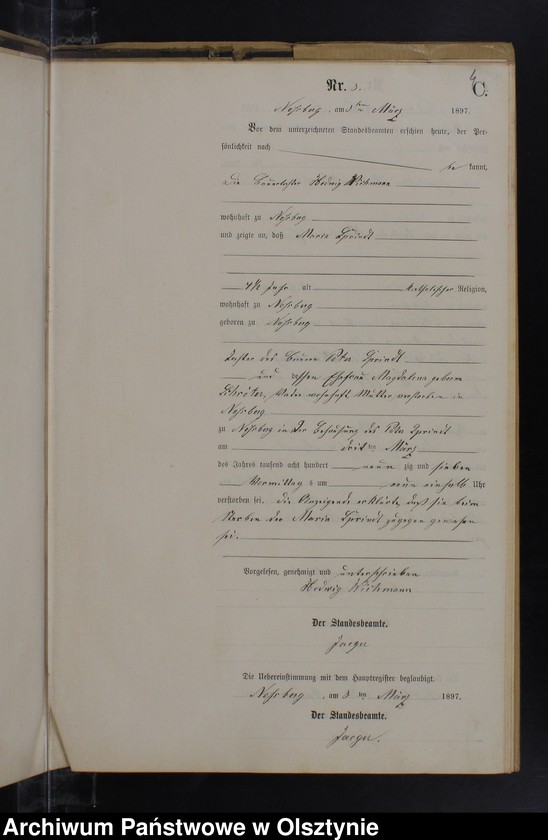 4
Nr. 3. C.
am 3ten März 1897.
Vor dem unterzeichneten Standesbeamten erschien heute, der Per-
sönlichkeit nach
be kannt,
die Hedwig Wichmann
wohnhaft zu
und zeigte an, daß Maria
4½ Jahr alt katholischer Religion,
wohnhaft zu
geboren zu
Tochter des Peter
und dessen Ehefrau Magdalena geborene
Vater wohnhaft Mutter verstorben in
zu in der Behausung des Peter
am dritten März
des Jahres tausend acht hundert neun zig und sieben
Vormittag s um neun einhalb Uhr
verstorben sei. Die Anzeigende erklärte, daß sie beim
Sterben der Maria zugegen gewesen
sei.
Vorgelesen, genehmigt und unterschrieben
Hedwig Wichmann
Der Standesbeamte.
Die Uebereinstimmung mit dem Hauptregister beglaubigt.
am 3ten März 1897.
Der Standesbeamte.
Archiwum Państwowe w Olsztynie